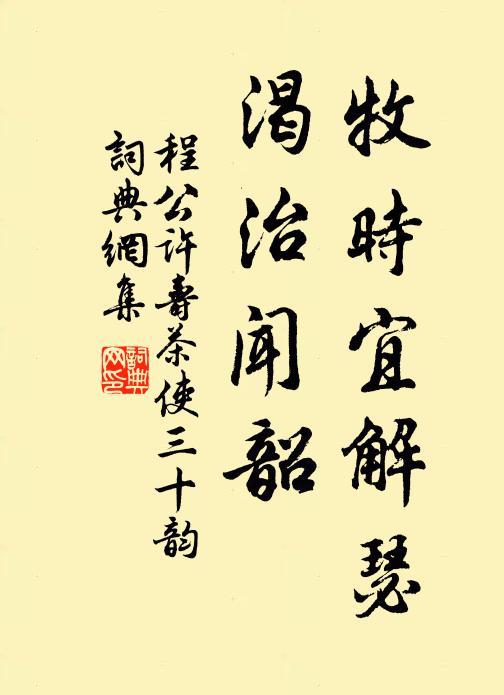 牧時宜解瑟
渴治闻韶
程公许壽茶使三十韵
詞典網集
詞典网印